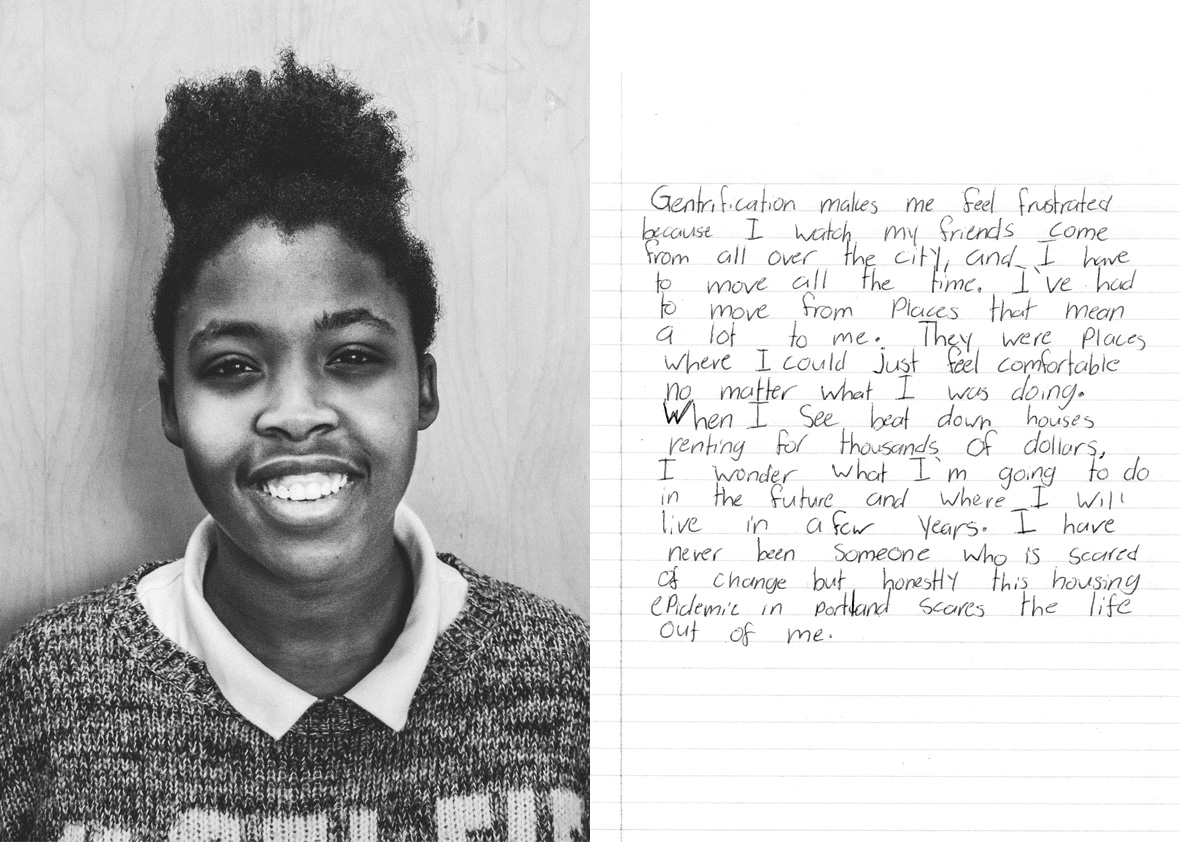 Gentrification makes me feel frustrated
because I watch my friends come
from all over the city, and I have
to move all the time. I've had
to move from Places that mean
a lot to me. They were Places
where I could just feel comfortable
no matter what I was doing.
When I See beat down houses
renting for thousands of dollars,
I wonder what I'm going to do
in the future and where I will
live in a few years. I have
never been someone who is scared
of change but honestly this housing
ePidemic in portland scares the life
out of me.